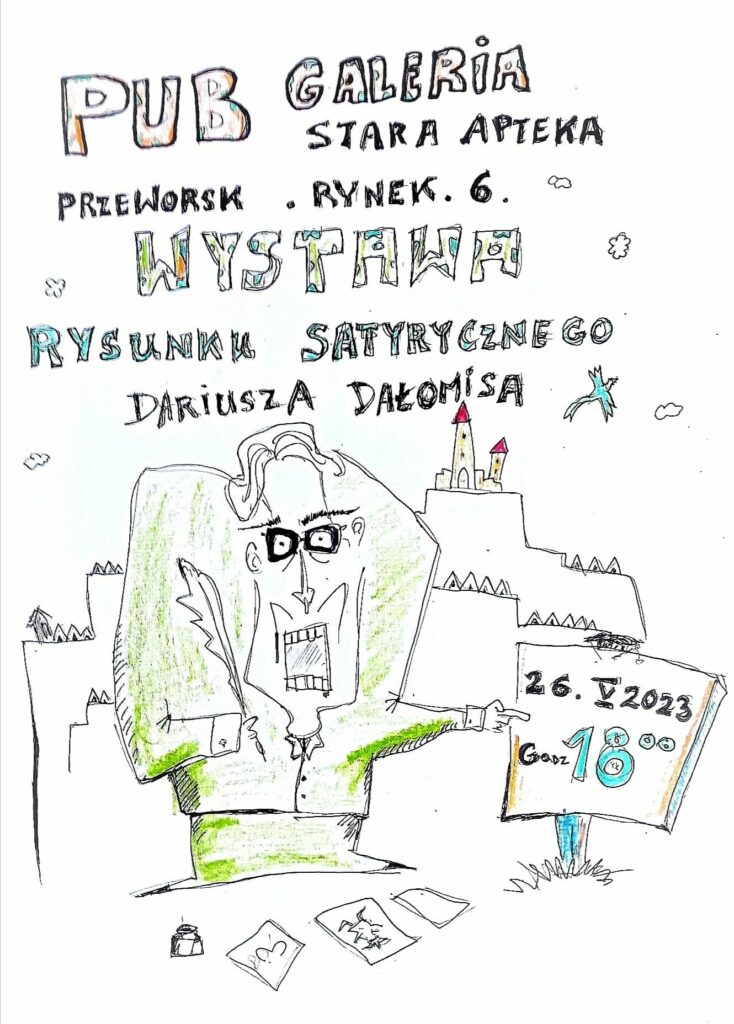 PUB GALERIA
STARA APTEKA
PRZEWORSK . RYNEK . 6 .
WYSTAWA
RYSUNKU SATYRYCZNEGO
DARIUSZA DAŁOMISA
26. V 2023
GODZ 18 00